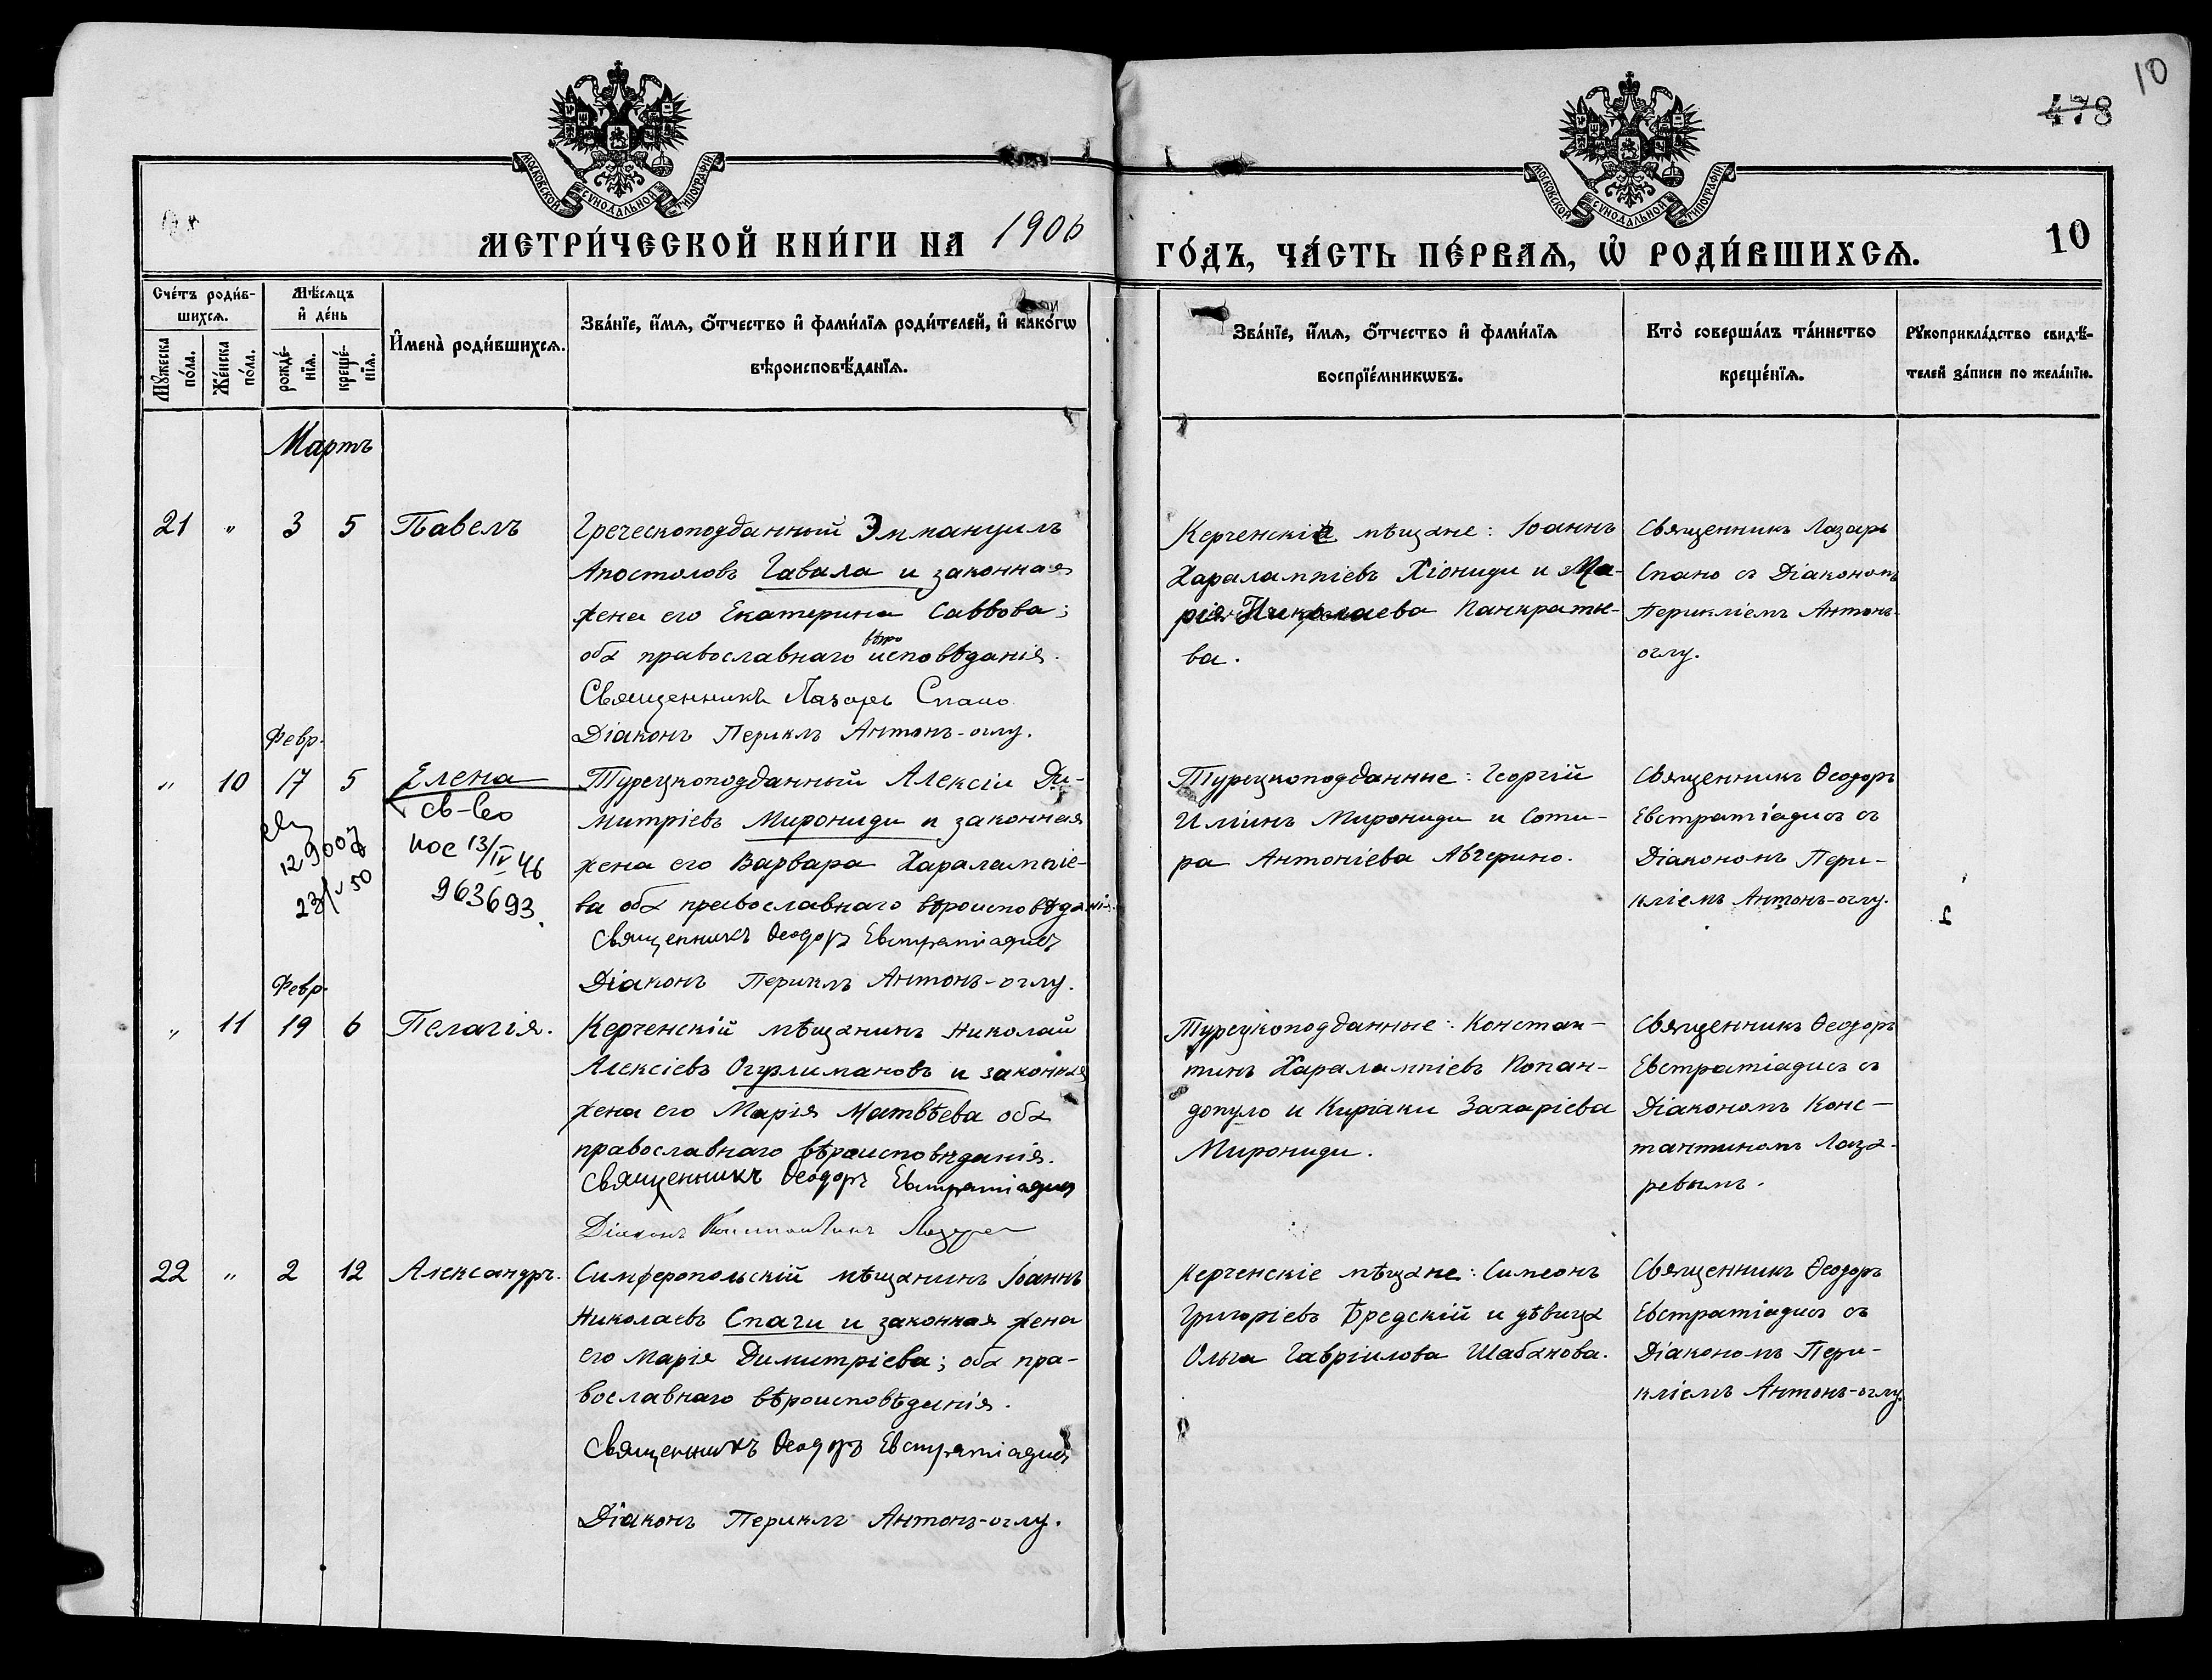 10
478
МОСКОВСКОЙ СѴНОДАЛЬНОЙ ТИПОГРАФІИ
МОСКОВСКОЙ СѴНОДАЛЬНОЙ ТИПОГРАФІИ
МЕТРИ́ЧЕСКОЙ КНИ́ГИ НА 1906
ГО́ДЪ, ЧА́СТЬ ПЕ́РВАѦ, Ѡ҆ РОДИ́ВШИХСѦ.
10
Сче́тъ роди́в-
шихсѧ.
Мꙋ́жеска по́ла.
Же́нска по́ла.
Мѣ́сѧцъ
и҆ де́нь
рожде́-
нїѧ.
креще́-
нїѧ.
И҆мена̀ роди́вшихсѧ.
Зва́нїе, и҆́мѧ, ѻ҆́тчество и҆ фами́лїѧ роди́телей, и҆ како́гѡ
вѣроисповѣ́данїѧ.
Зва́нїе, и҆́мѧ, ѻ҆́тчество и҆ фами́лїѧ
воспрїе́мникѡвъ.
Кто̀ соверша́лъ та́инство
креще́нїѧ.
Рꙋкоприкла́дство свидѣ́-
телей за́писи по жела́нїю.
Мартъ
21 " 3 5 Павелъ
Греческоподданный Эммануилъ
Апостоловъ Гавала и законная
жена его Екатерина Саввова;
оба православнаго вѣроисповѣданія.
Священникъ Лазарь Спано
Діаконъ Периклъ Антонъ-оглу.
Керченскіе мѣщане: Іоаннъ
Харалампіевъ Хіониди и Ма-
рія Николаева Панкратье-
ва.
Священникъ Лазарь
Спано съ Діакономъ
Перикліемъ Антонъ-
оглу.
Февр.
" 10 17 5 Елена
св-во
12900
23/V 50
13/IV 46
963693.
Турецкоподданный Алексій Ди-
митріевъ Мирониди и законная
жена его Варвара Харалампіе-
ва оба православнаго вѣроисповѣданія.
Священникъ Ѳеодоръ Евстратіадисъ
Діаконъ Периклъ Антонъ-оглу.
Турецкоподданные: Георгій
Ильинъ Мирониди и Соти-
ра Антоніева Авгерино.
Священникъ Ѳеодоръ
Евстратіадисъ съ
Діакономъ Пери-
кліемъ Антонъ-оглу.
Февр.
" 11 19 6 Пелагія.
Керченскій мѣщанинъ Николай
Алексіевъ Огурлимановъ и законная
жена его Марія Матвѣева оба
православнаго вѣроисповѣданія.
Священникъ Ѳеодоръ Евстратіадисъ
Діаконъ Константинъ Лазарев
Турецкоподданные: Констан-
тинъ Харалампіевъ Попан-
допуло и Киріаки Захаріева
Мирониди.
Священникъ Ѳеодоръ
Евстратіадисъ съ
Діакономъ Конс-
тантиномъ Лаза-
ревымъ.
22 " 2 12 Александръ.
Симферопольскій мѣщанинъ Іоаннъ
Николаевъ Спаги и законная жена
его Марія Димитріева; оба пра-
вославнаго вѣроисповѣданія.
Священникъ Ѳеодоръ Евстратіадисъ
Діаконъ Периклъ Антонъ-оглу.
Керченскіе мѣщане: Симеонъ
Григоріевъ Бредскій и дѣвица
Ольга Гавріилова Шабанова.
Священникъ Ѳеодоръ
Евстратіадисъ съ
Діакономъ Пери-
кліемъ Антонъ-оглу.